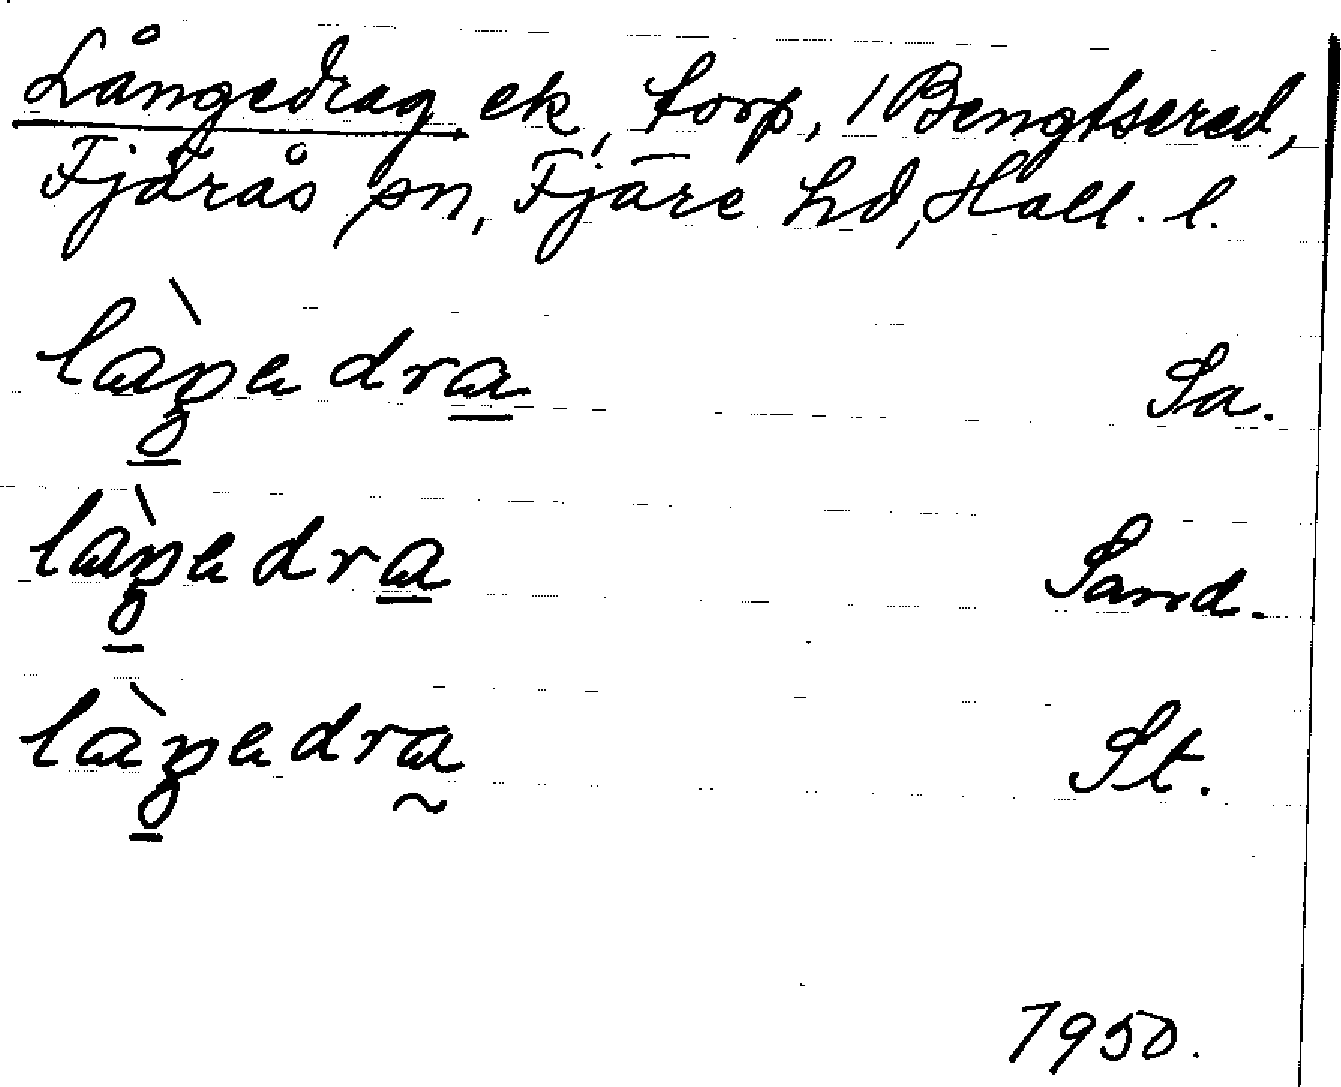 Långedrag, ek, torp, i Bengtsered,
Fjärås sn, Fjäre hd, Hall. l.
làŋedra Sa.
làŋedra Sand.
làŋedra St.
1950.